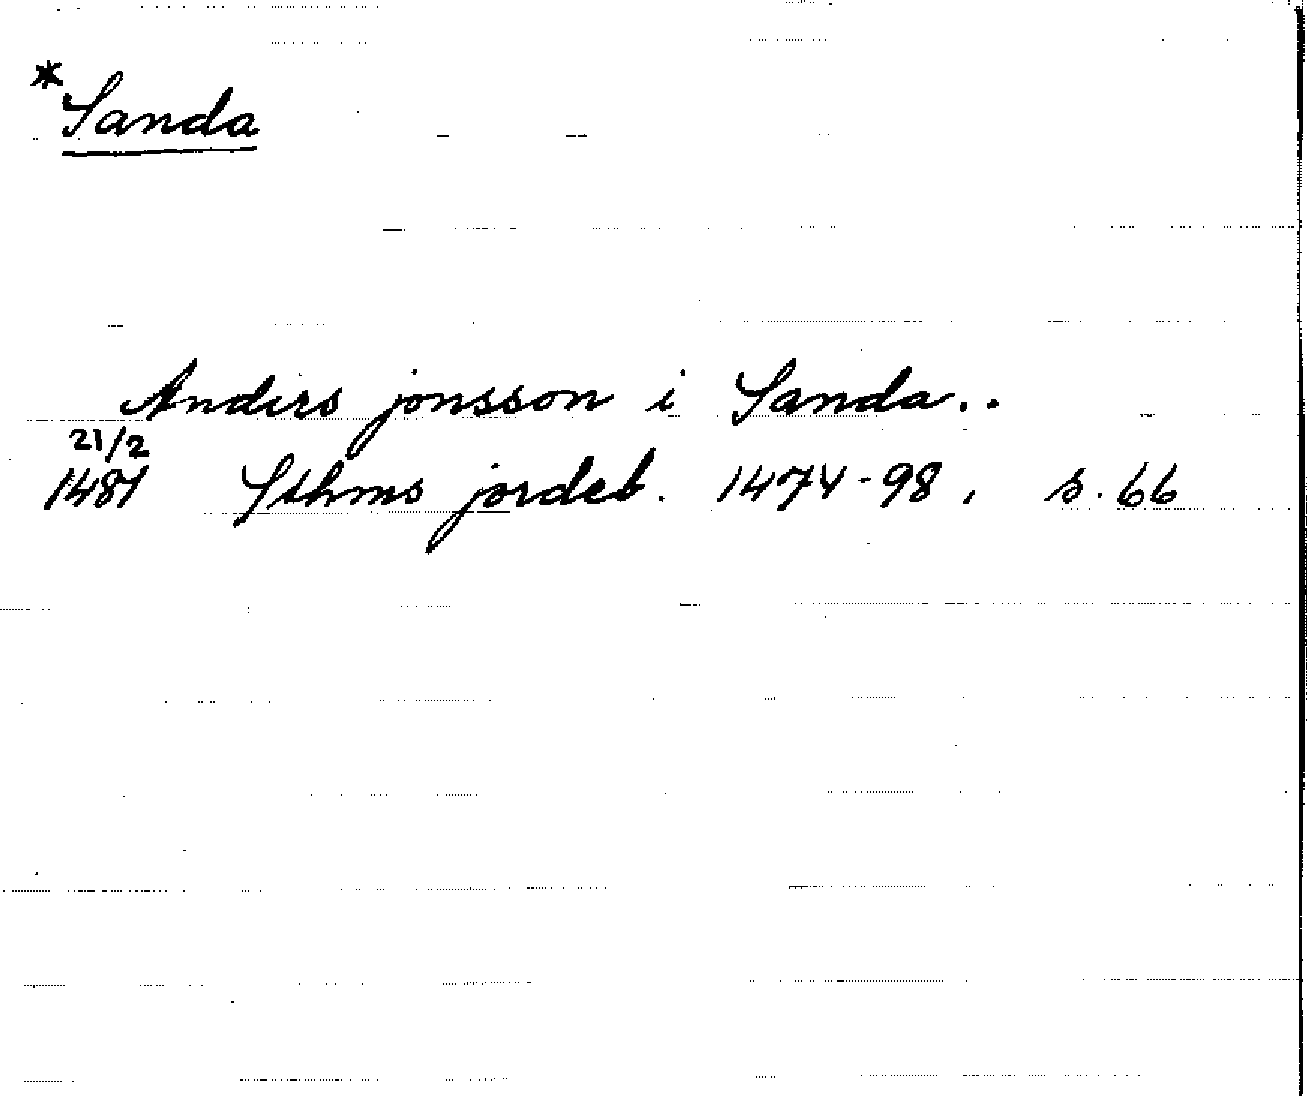 *Sanda
Anders jonsson i Sanda..
21/2
1481 Sthms jordeb. 1474-98, s. 66